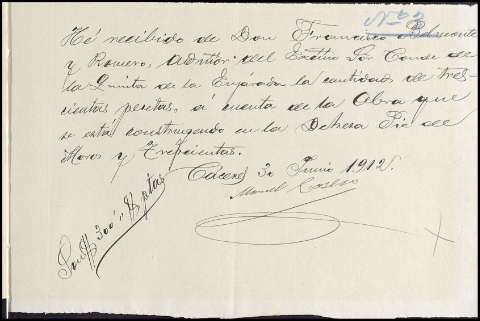 Nº 2
He recibido de Don Francisco Belmonte
y Romero, Admor del Exctmo Sor Conde de
la Quinta de la Enjarada la cantidad de tres-
cientas pesetas, á cuenta de la Obra que
se está construyendo en la Dehesa Pie de
Moros y Trescientas.
Cáceres 30 Junio 1912.
Manuel
Son # 300 " # ptas